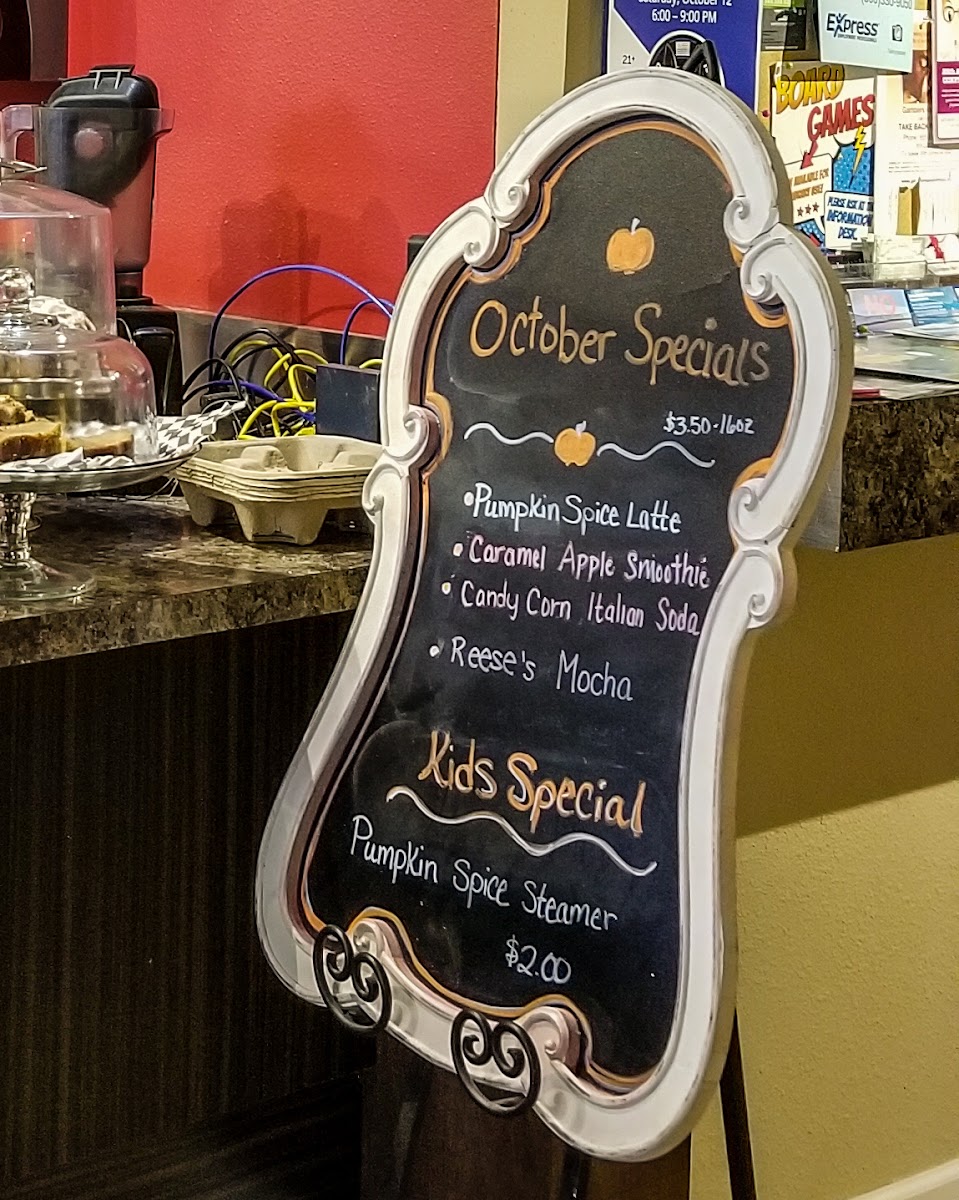 Saturday, October 12
6:00 – 9:00 PM
21+
Express
EMPLOYMENT PROFESSIONALS
BOARD
GAMES
AVAILABLE FOR
PLEASE ASK AT
INFORMATION
DESK
TAKE BACK
October Specials
$3.50-16oz
•Pumpkin Spice Latte
• Caramel Apple Smoothie
• Candy Corn Italian Soda
• Reese's Mocha
Kids Special
Pumpkin Spice Steamer
$2.00